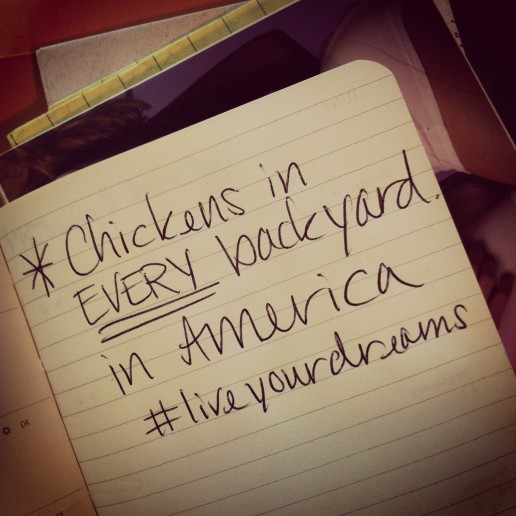 * Chickens in
EVERY backyard.
in America
#liveyourdreams
DK